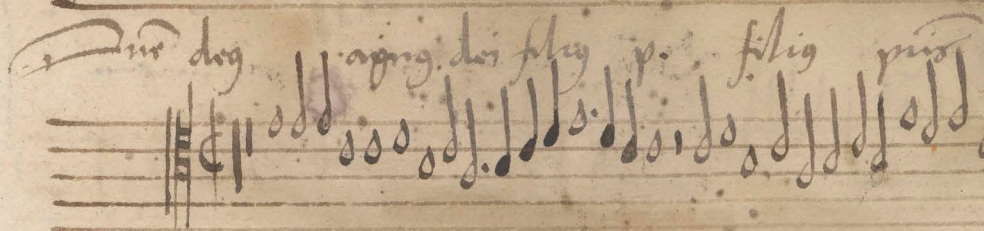 Dn̄e deꝰ agnꝰ dei filiꝰ p. filiꝰ pr̄is